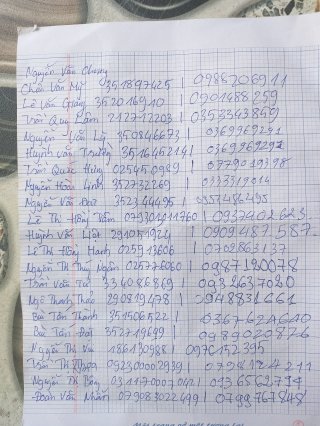 Nguyễn Văn Chung
Chấn Văn Mỹ 351897425 | 0986206911
Lê Văn Giàng 352016910 | 0901488259
Trần Quý Lâm 212712203 | 0353343859
Nguyễn Văn Lý 350846673 | 0369969291
Huỳnh Văn Trường 351645214 | 0369969292
Trần Quốc Hưng 025450989 | 0779019398
Nguyễn Hoài Anh 352732269 | 0333319014
Nguyễn Văn Đua 352344495
Lê Thị Hồng Vân 079301011760 | 0937402623
Huỳnh Văn Liệt 291071924 | 0909487587
Lê Thị Hồng Hạnh 025913606 | 0702863137
Nguyễn Thị Thúy Ngân 025776060 | 0987120078
Trần Văn Tài 334086869 | 0932637020
Ngô Thanh Thảo 290819478 | 0948831661
Bùi Tấn Thành 351506522
Bùi Tấn Đạt 352719699 | 0989020876
Nguyễn Thị Vui 186130988 | 0970152395
Trần Thị 092300002939
Nguyễn Thị Bông 0136562714
Đoàn Văn Nhẫn 079083022499 | 0799767848